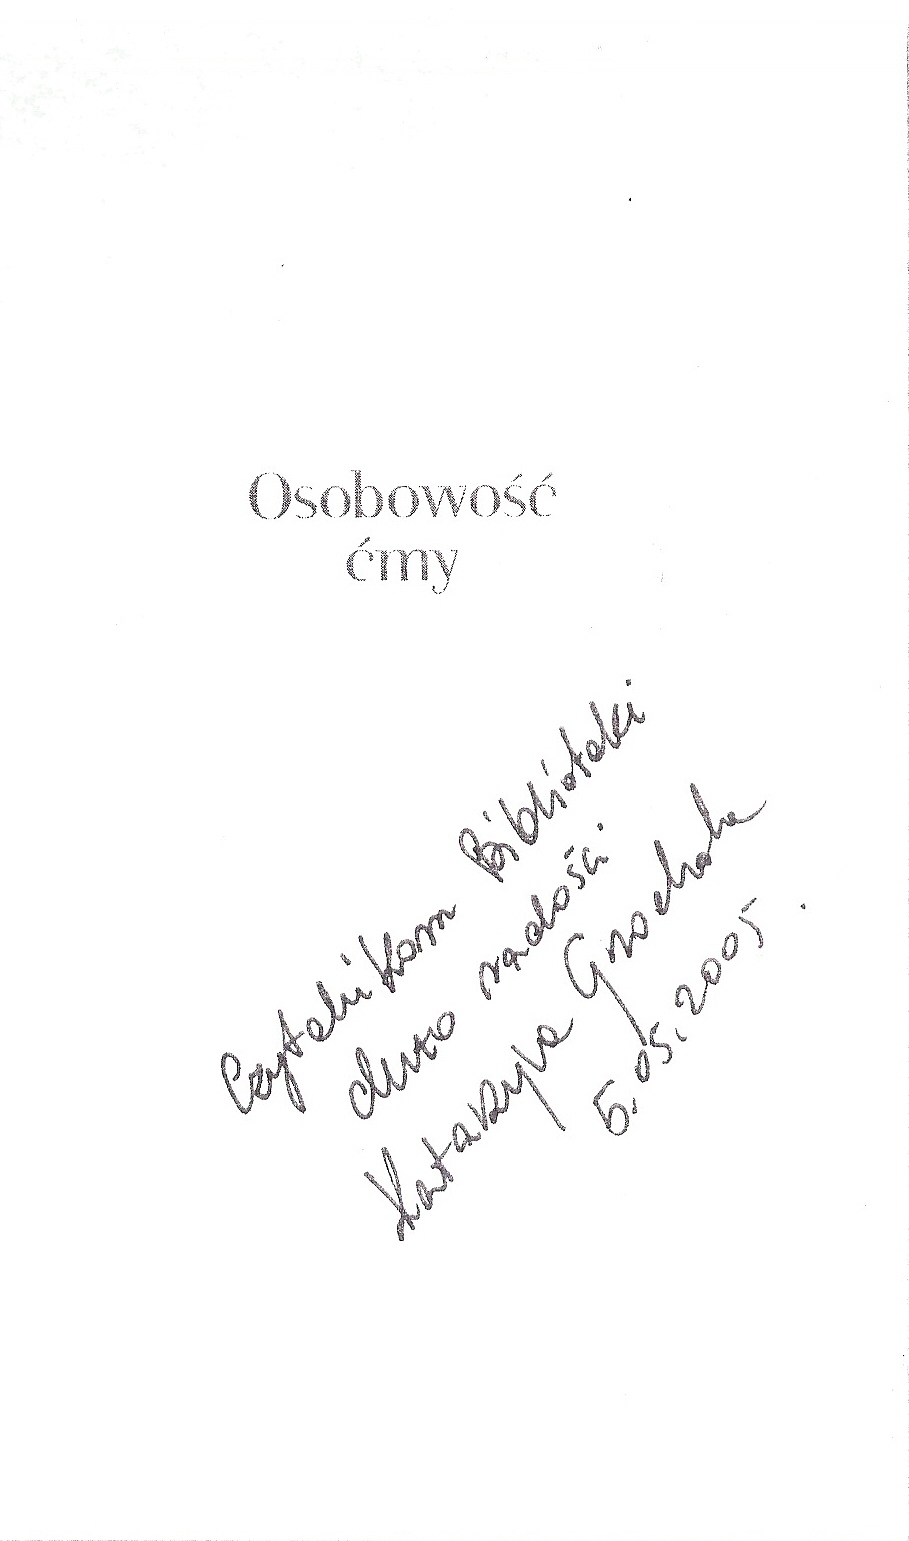 Osobowość
ćmy
Czytelnikom Biblioteki
dużo radości
Katarzyna Grochola
5.05.2005.